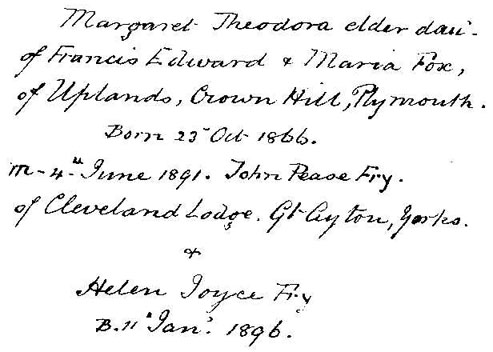 Margaret Theodora elder dau'-
of Francis Edward & Maria Fox,
of Uplands, Crown Hill, Plymouth.
Born 23 Oct 1866.
m - 4th June 1891. John Pease Fry.
of Cleveland Lodge. Gt Ayton, Yorks.
&
Helen Joyce Fry
B. 11 Jan'. 1896.